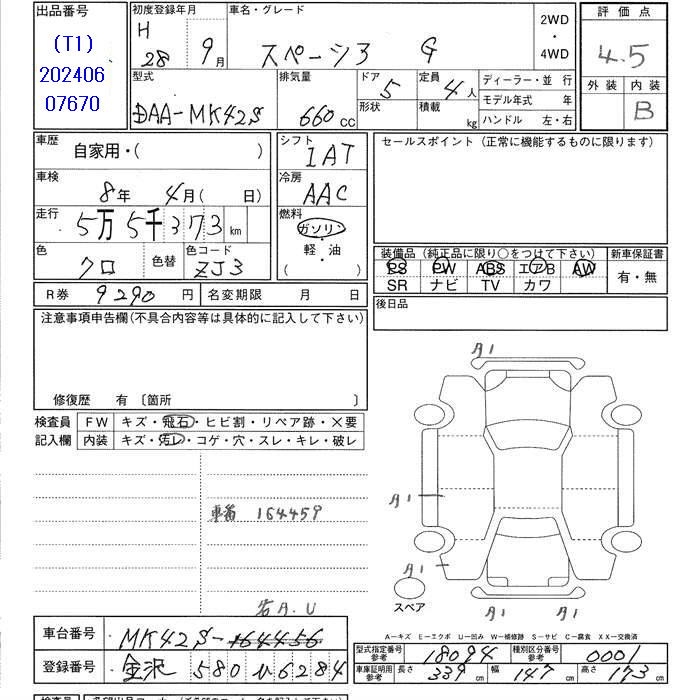 出品番号 (T1) 202406 07670
初度登録年月 H 28年 9月
車名・グレード スペーシア G
2WD ・ 4WD
評価点 4.5
外装 内装 B
型式 DAA-MK42S
排気量 660 CC
ドア 5 形状
定員 4人 積載 kg
ディーラー・並行
モデル年式 年
ハンドル 左・右
車歴 自家用・( )
シフト IAT
セールスポイント (正常に機能するものに限ります)
車検 8年 4月( 日)
冷房 AAC
走行 5万5千373 km
燃料 ガソリン ・ 軽油 ( )
色 クロ 色替 色コード ZJ3
装備品 (純正品に限り○をつけて下さい) 新車保証書
PS PW ABS エアB AW 有・無
SR ナビ TV カワ
R券 9290 円 名変期限 月 日
後日品
注意事項申告欄(不具合内容等は具体的に記入して下さい)
修復歴 有 〔箇所 〕
検査員 FW キズ・飛石・ヒビ割・リペア跡・×要
記入欄 内装 キズ・汚レ・コゲ・穴・スレ・キレ・破レ
A1
A1
車番 164459
A1
スペア
A1 A1
右A.U
A-キズ E-エクボ U-凹み W-補修跡 S-サビ C-腐食 XX-交換済
車台番号 MK42S-164456
型式指定番号 参考 18094 種類区分番号 参考 0001
登録番号 金沢 580 い 6284
車庫証明用 参考 長さ 339 cm 幅 147 cm 高さ 173 cm